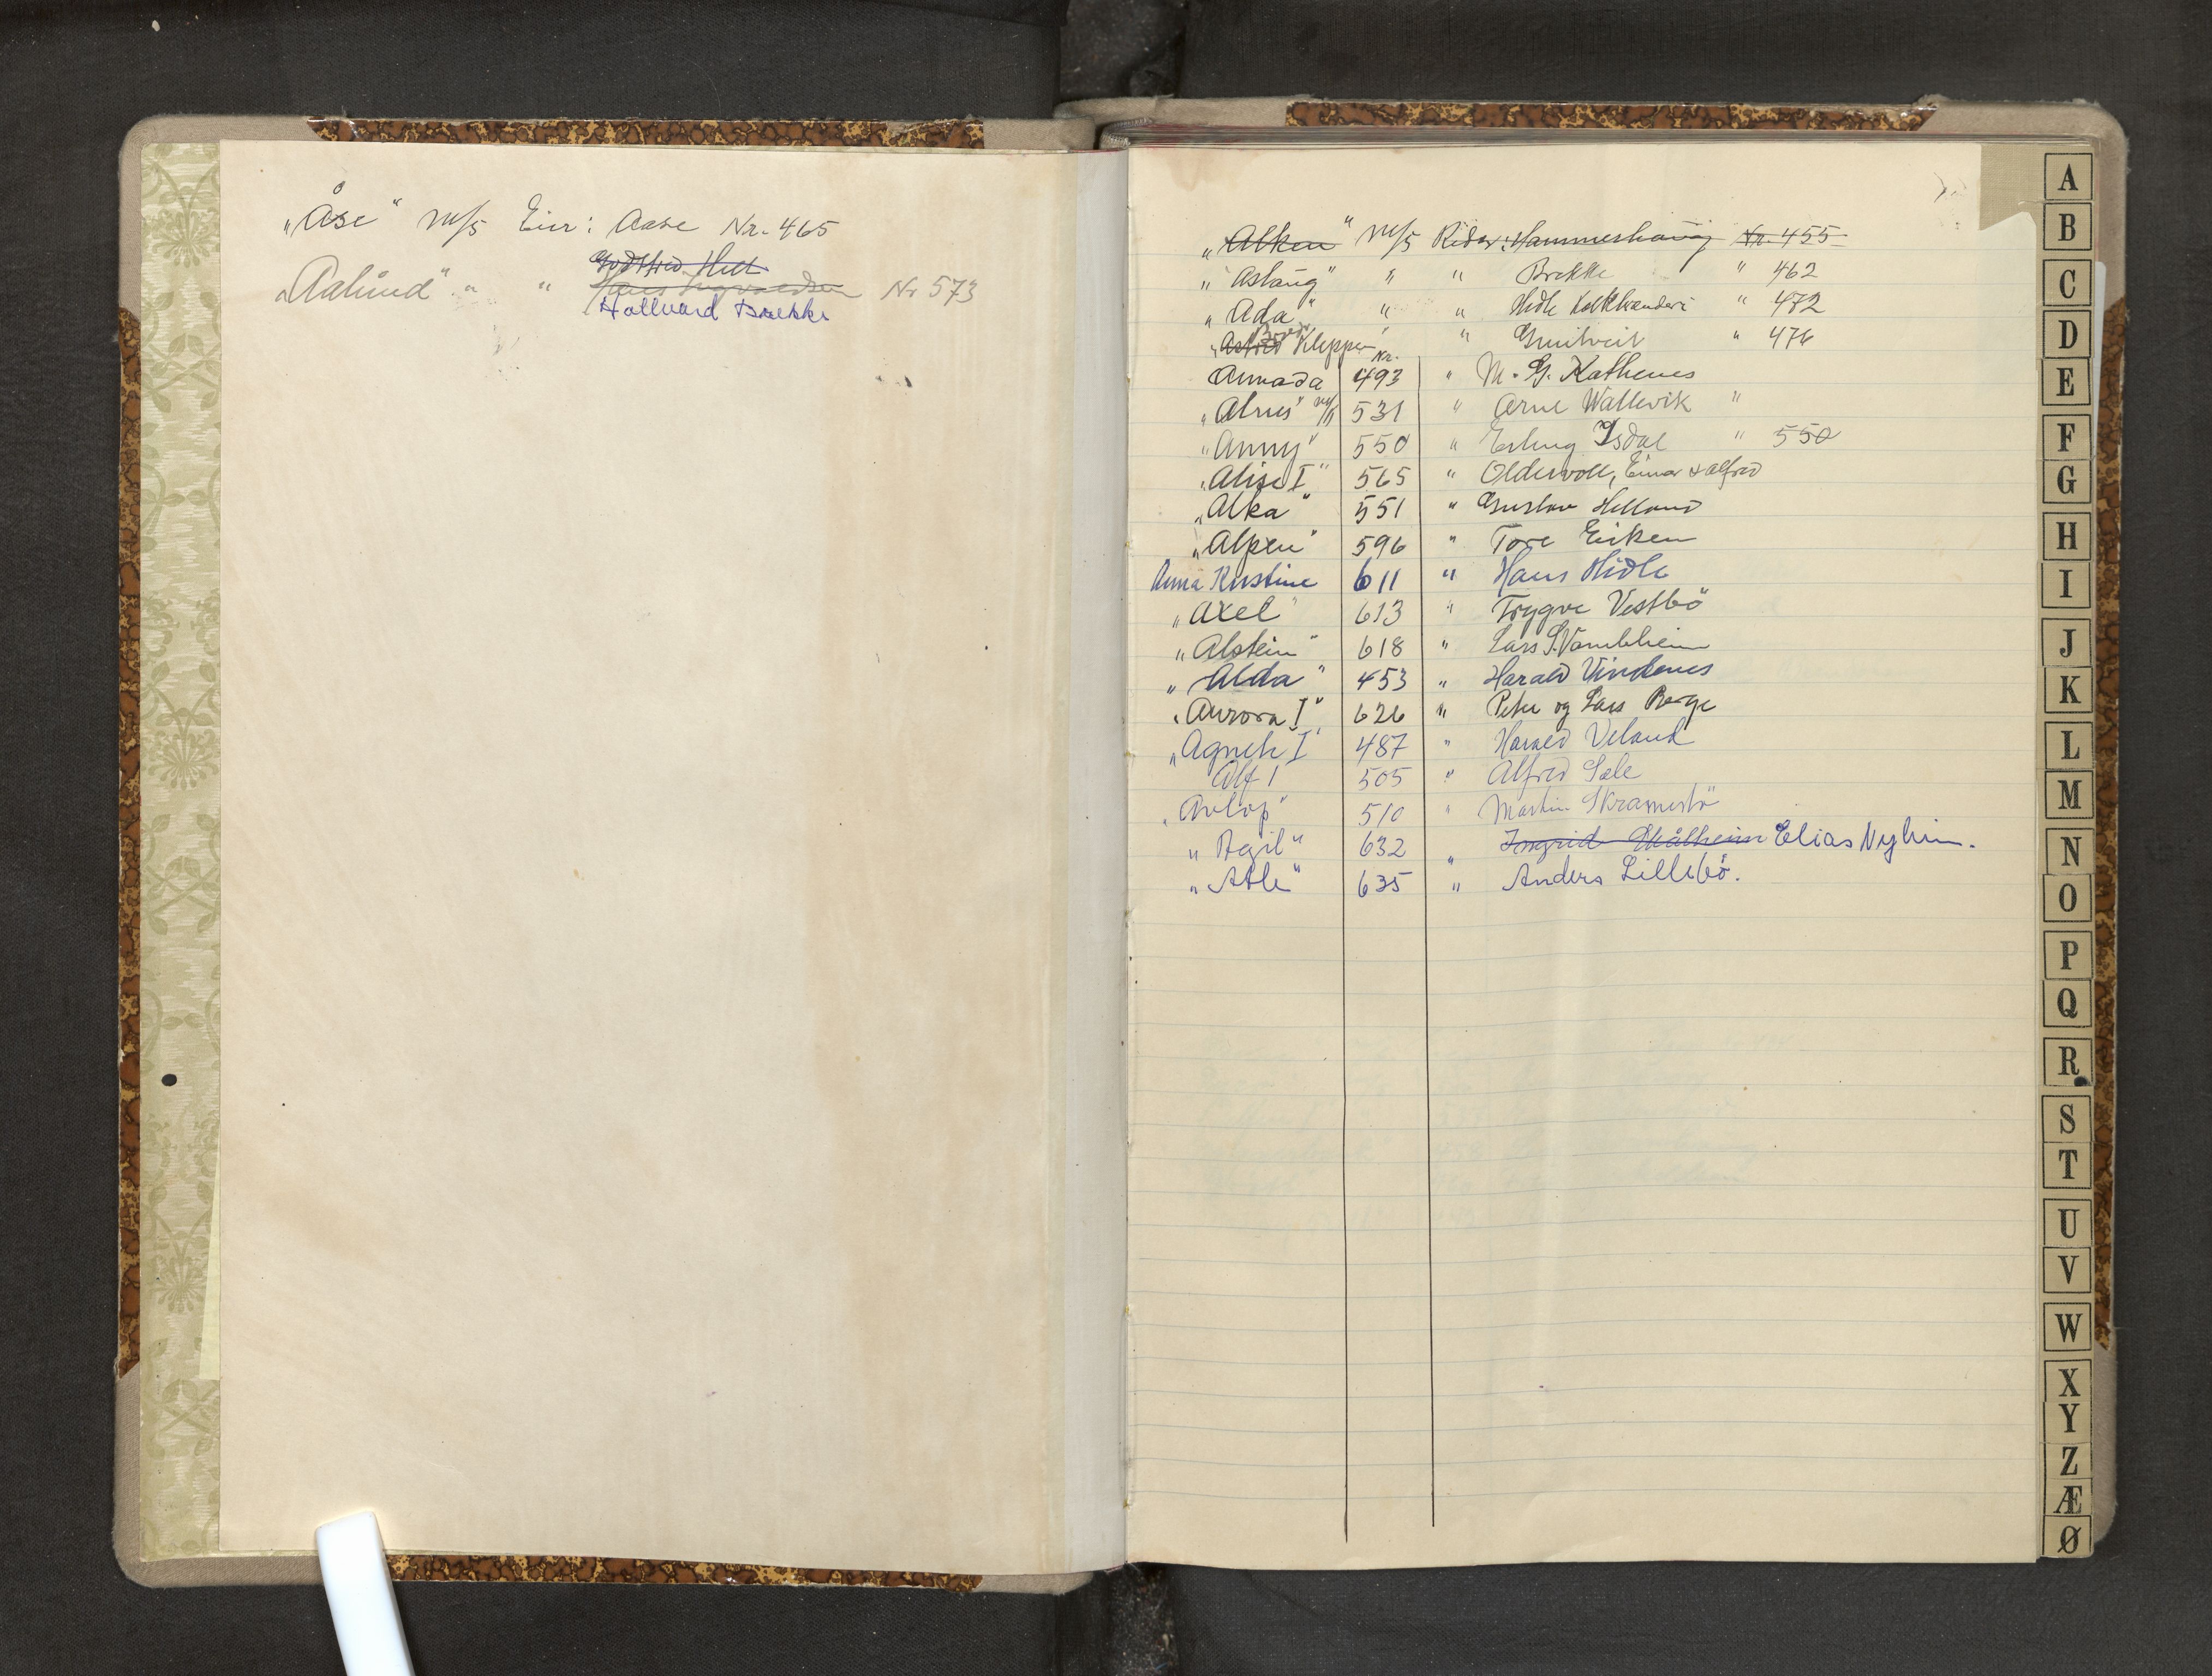 „Åse“ m/s Eier: Aase Nr. 465
Godtfred Hill
„Aalund“ " " Hans Ingvaldsen Nr 573
Hallvard Brekke
„Alken“ m/s Reder: Hammershaug Nr. 455
„Aslaug“ " " Brekke " 462
„Ada“ " " Hidle " 472
„Astrid Klepper " " " 476
Nr.
Annada 493 " M. G. Kathenes
„Alnus“ m/s 531 " Arne Wallevik "
„Anny“ 550 " Erling Isdal " 550
„Alise I“ 565 " Oldervoll, Einar & Alfred
„Alka“ 551 " Gustav Helland
„Alpen“ 596 " Tore Eiken
Anna Kristine 611 " Hans Hidle
„Axel“ 613 " Trygve Vestbö
„Alstein“ 618 " Lars S. Vambheim
„Alda“ 453 " Harald Vindenes
„Aurora I“ 626 " Peter og Lars Berge
„Agnete I“ 487 " Harald Veland
Alf 1 505 " Alfred Sæle
„Avlop“ 510 " Martin Skramestö
„Agil“ 632 " Ingrid Måltheim Elias Nyheim.
„Atle“ 635 " Anders Lillebö.
A
B
C
D
E
F
G
H
I
J
K
L
M
N
O
P
Q
R
S
T
U
V
W
X
Y
Z
Æ
Ø